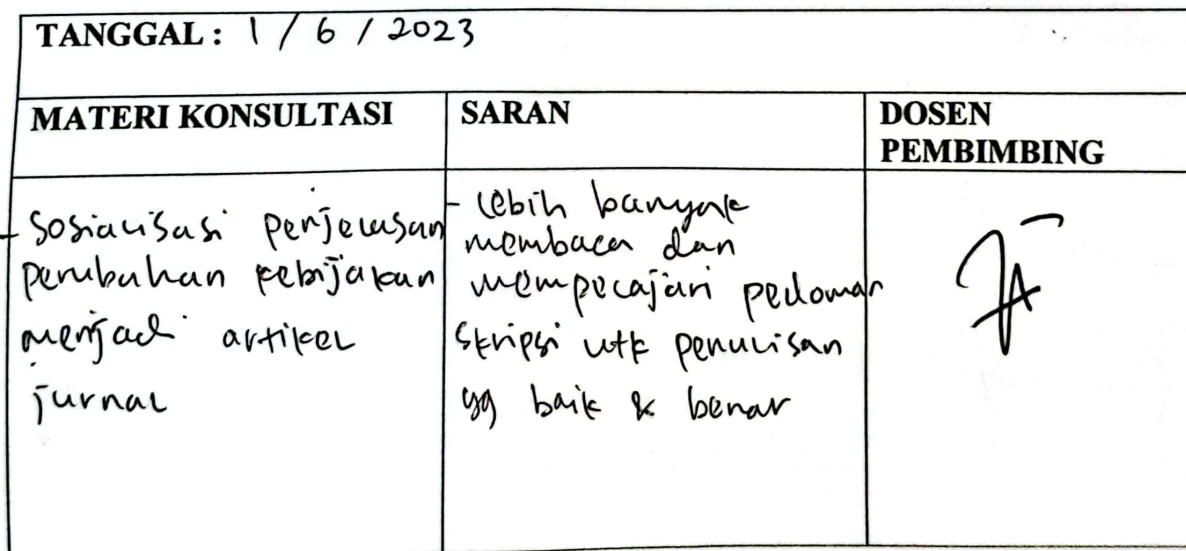 TANGGAL : 1 / 6 / 2023
MATERI KONSULTASI
SARAN
DOSEN
PEMBIMBING
- Sosialisasi penjelasan
perubahan kebijakan
menjadi artikel
jurnal
- lebih banyak
membaca dan
mempelajari pedoman
skripsi utk penulisan
yg baik & benar